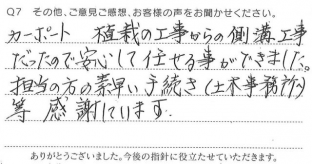 Q7 その他、ご意見ご感想、お客様の声をお聞かせください。
カーポート 植栽の工事からの側溝工事
だったので安心して任せる事ができました。
担当の方の素早い手続き(土木事務所)
等 感謝しています.
ありがとうございました。今後の指針に役立たせていただきます。